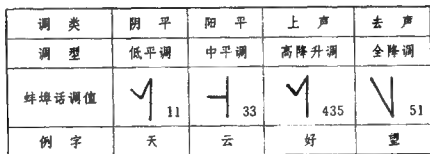 调类 阴平 阳平 上声 去声
调型 低平调 中平调 高降升调 全降调
蚌埠话调值 11 33 435 51
例字 天 云 好 望